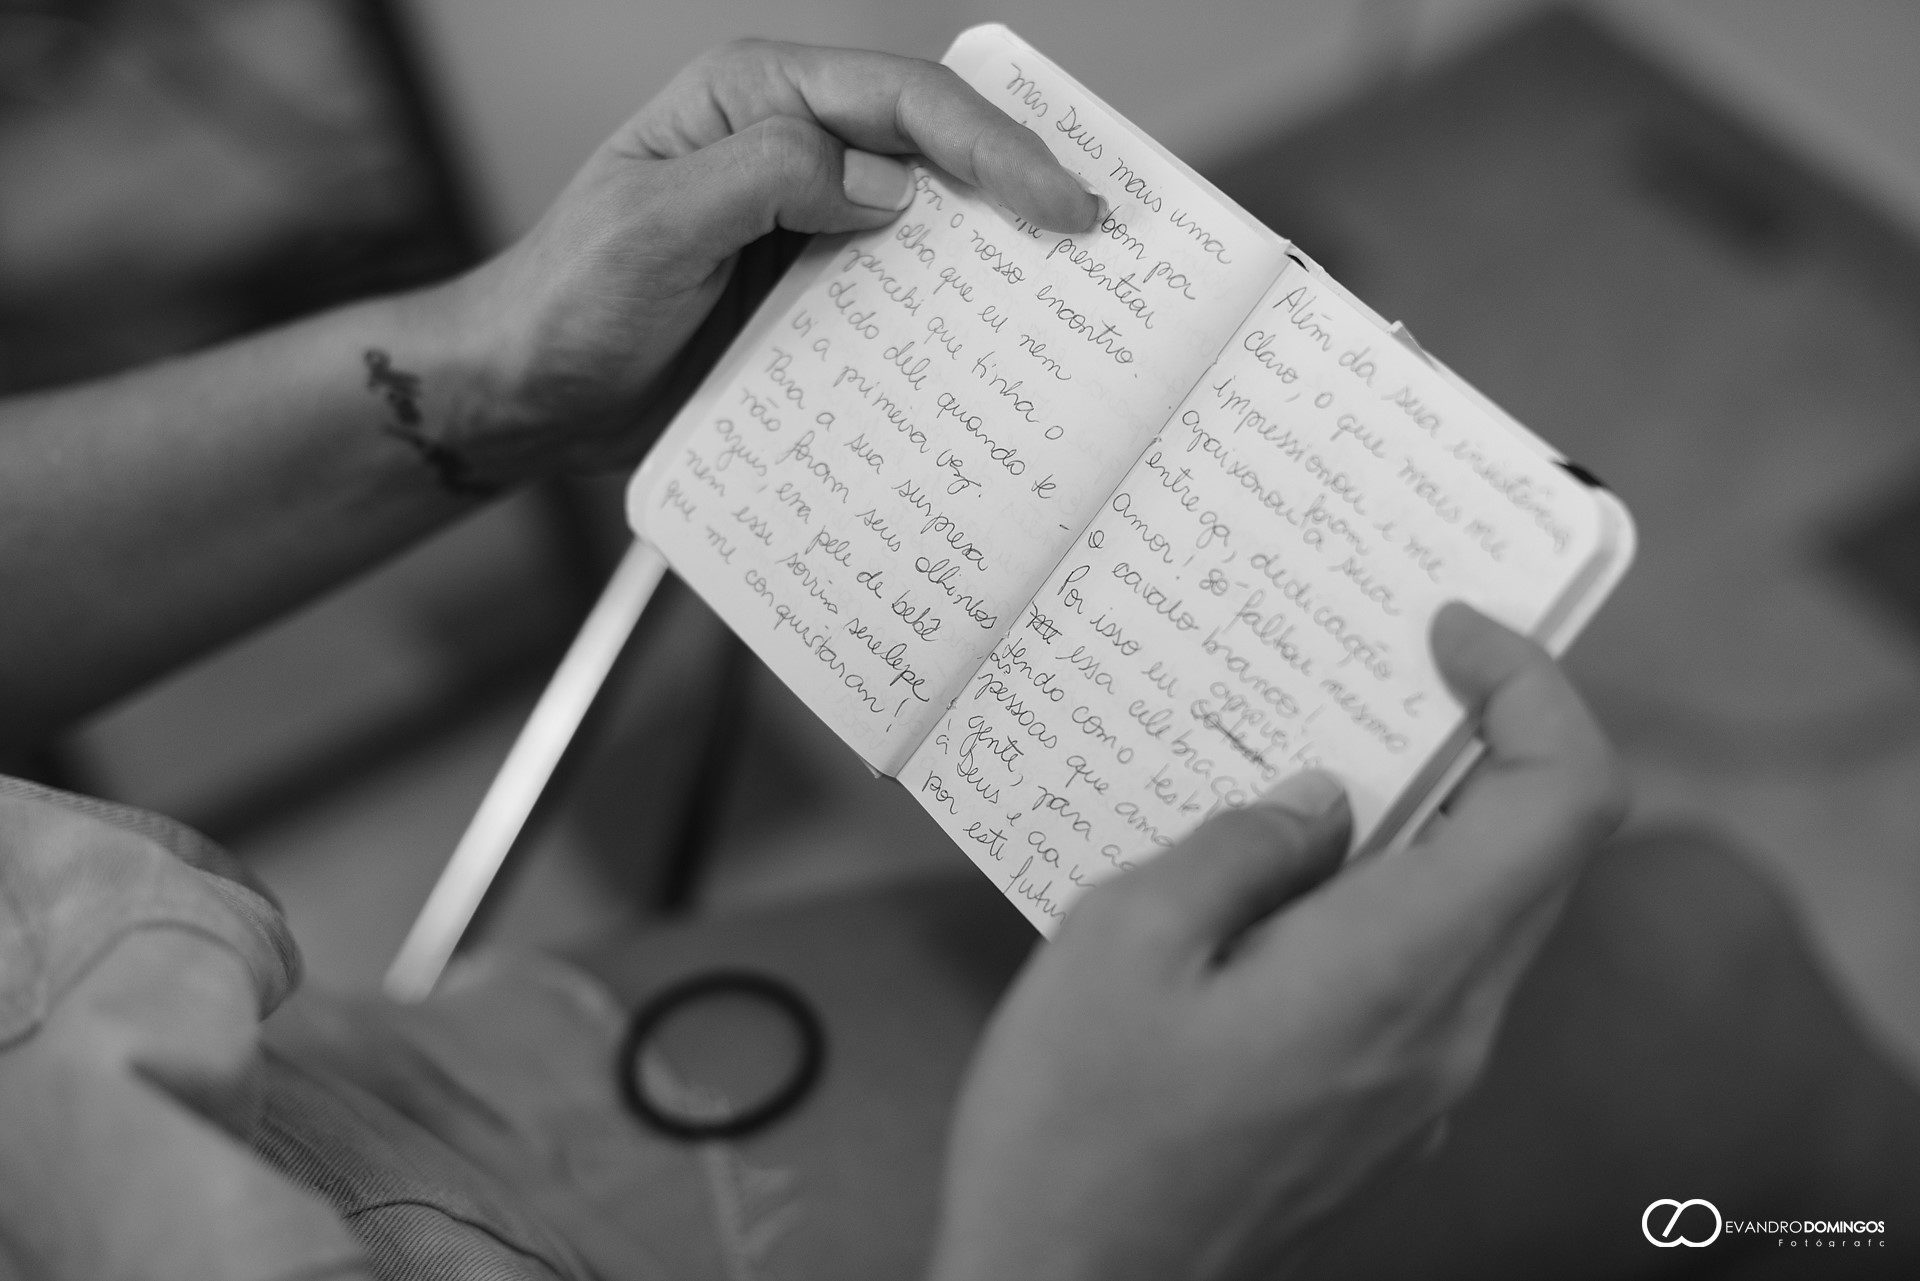 mas Deus mais uma
bom por
presentear
com o nosso encontro.
olha que eu nem
percebi que tinha o
dedo dele quando te
vi a primeira vez.
Para a sua surpresa
não foram seus olhinhos
azuis, essa pele de bebê
nem esse sorriso serelepe
que me conquistaram!
Além da sua insistência
claro, o que mais me
impressionou e me
apaixonou foram a sua
entrega, dedicação e
amor! só faltou mesmo
o cavalo branco!
Por isso eu aproveito
essa celebração
tendo como test
as pessoas que ama
gente, para ag
à Deus e ao u
por este futur
EVANDRODOMINGOS
Fotógrafo